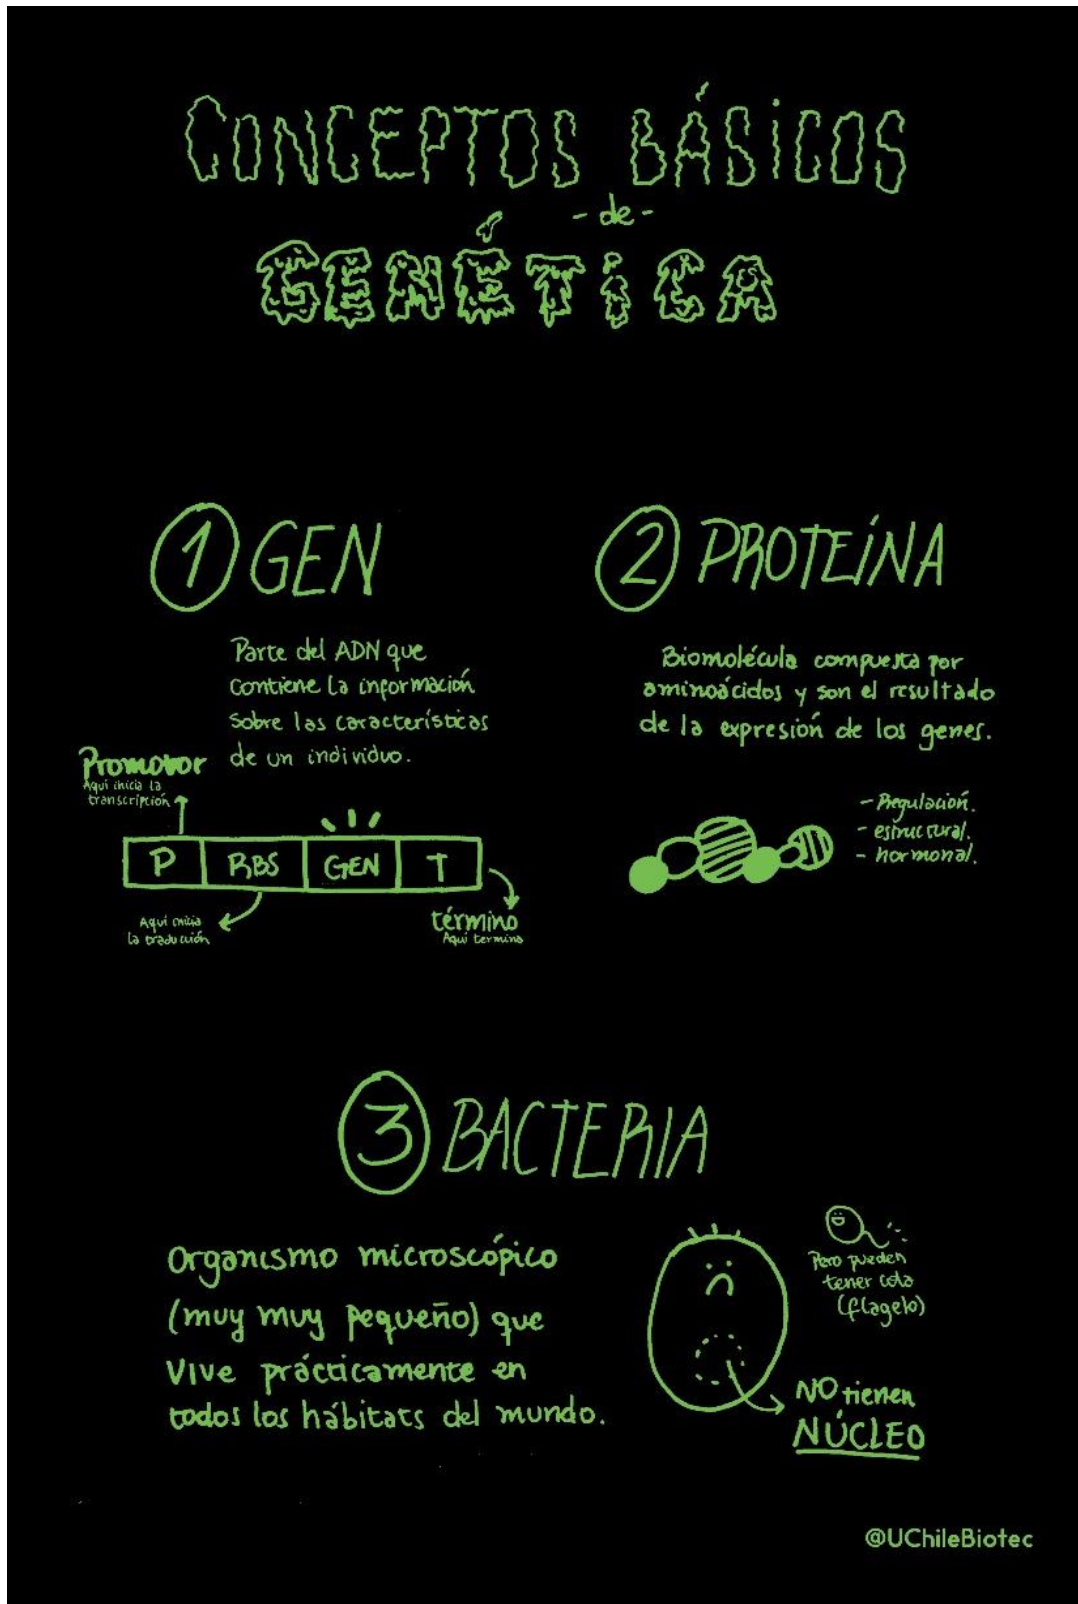 CONCEPTOS BÁSICOS
- de -
GENÉTICA
1 GEN
Parte del ADN que
contiene la información
sobre las características
de un individuo.
Promotor
Aquí inicia la
transcripción
P RBS GEN T
Aquí inicia
la traducción
término
Aquí termina
2 PROTEÍNA
Biomolécula compuesta por
aminoácidos y son el resultado
de la expresión de los genes.
- Regulación.
- estructural.
- hormonal.
3 BACTERIA
Organismo microscópico
(muy muy pequeño) que
Vive prácticamente en
todos los hábitats del mundo.
Pero pueden
tener cola
(flagelo)
NO tienen
NÚCLEO
@UChileBiotec